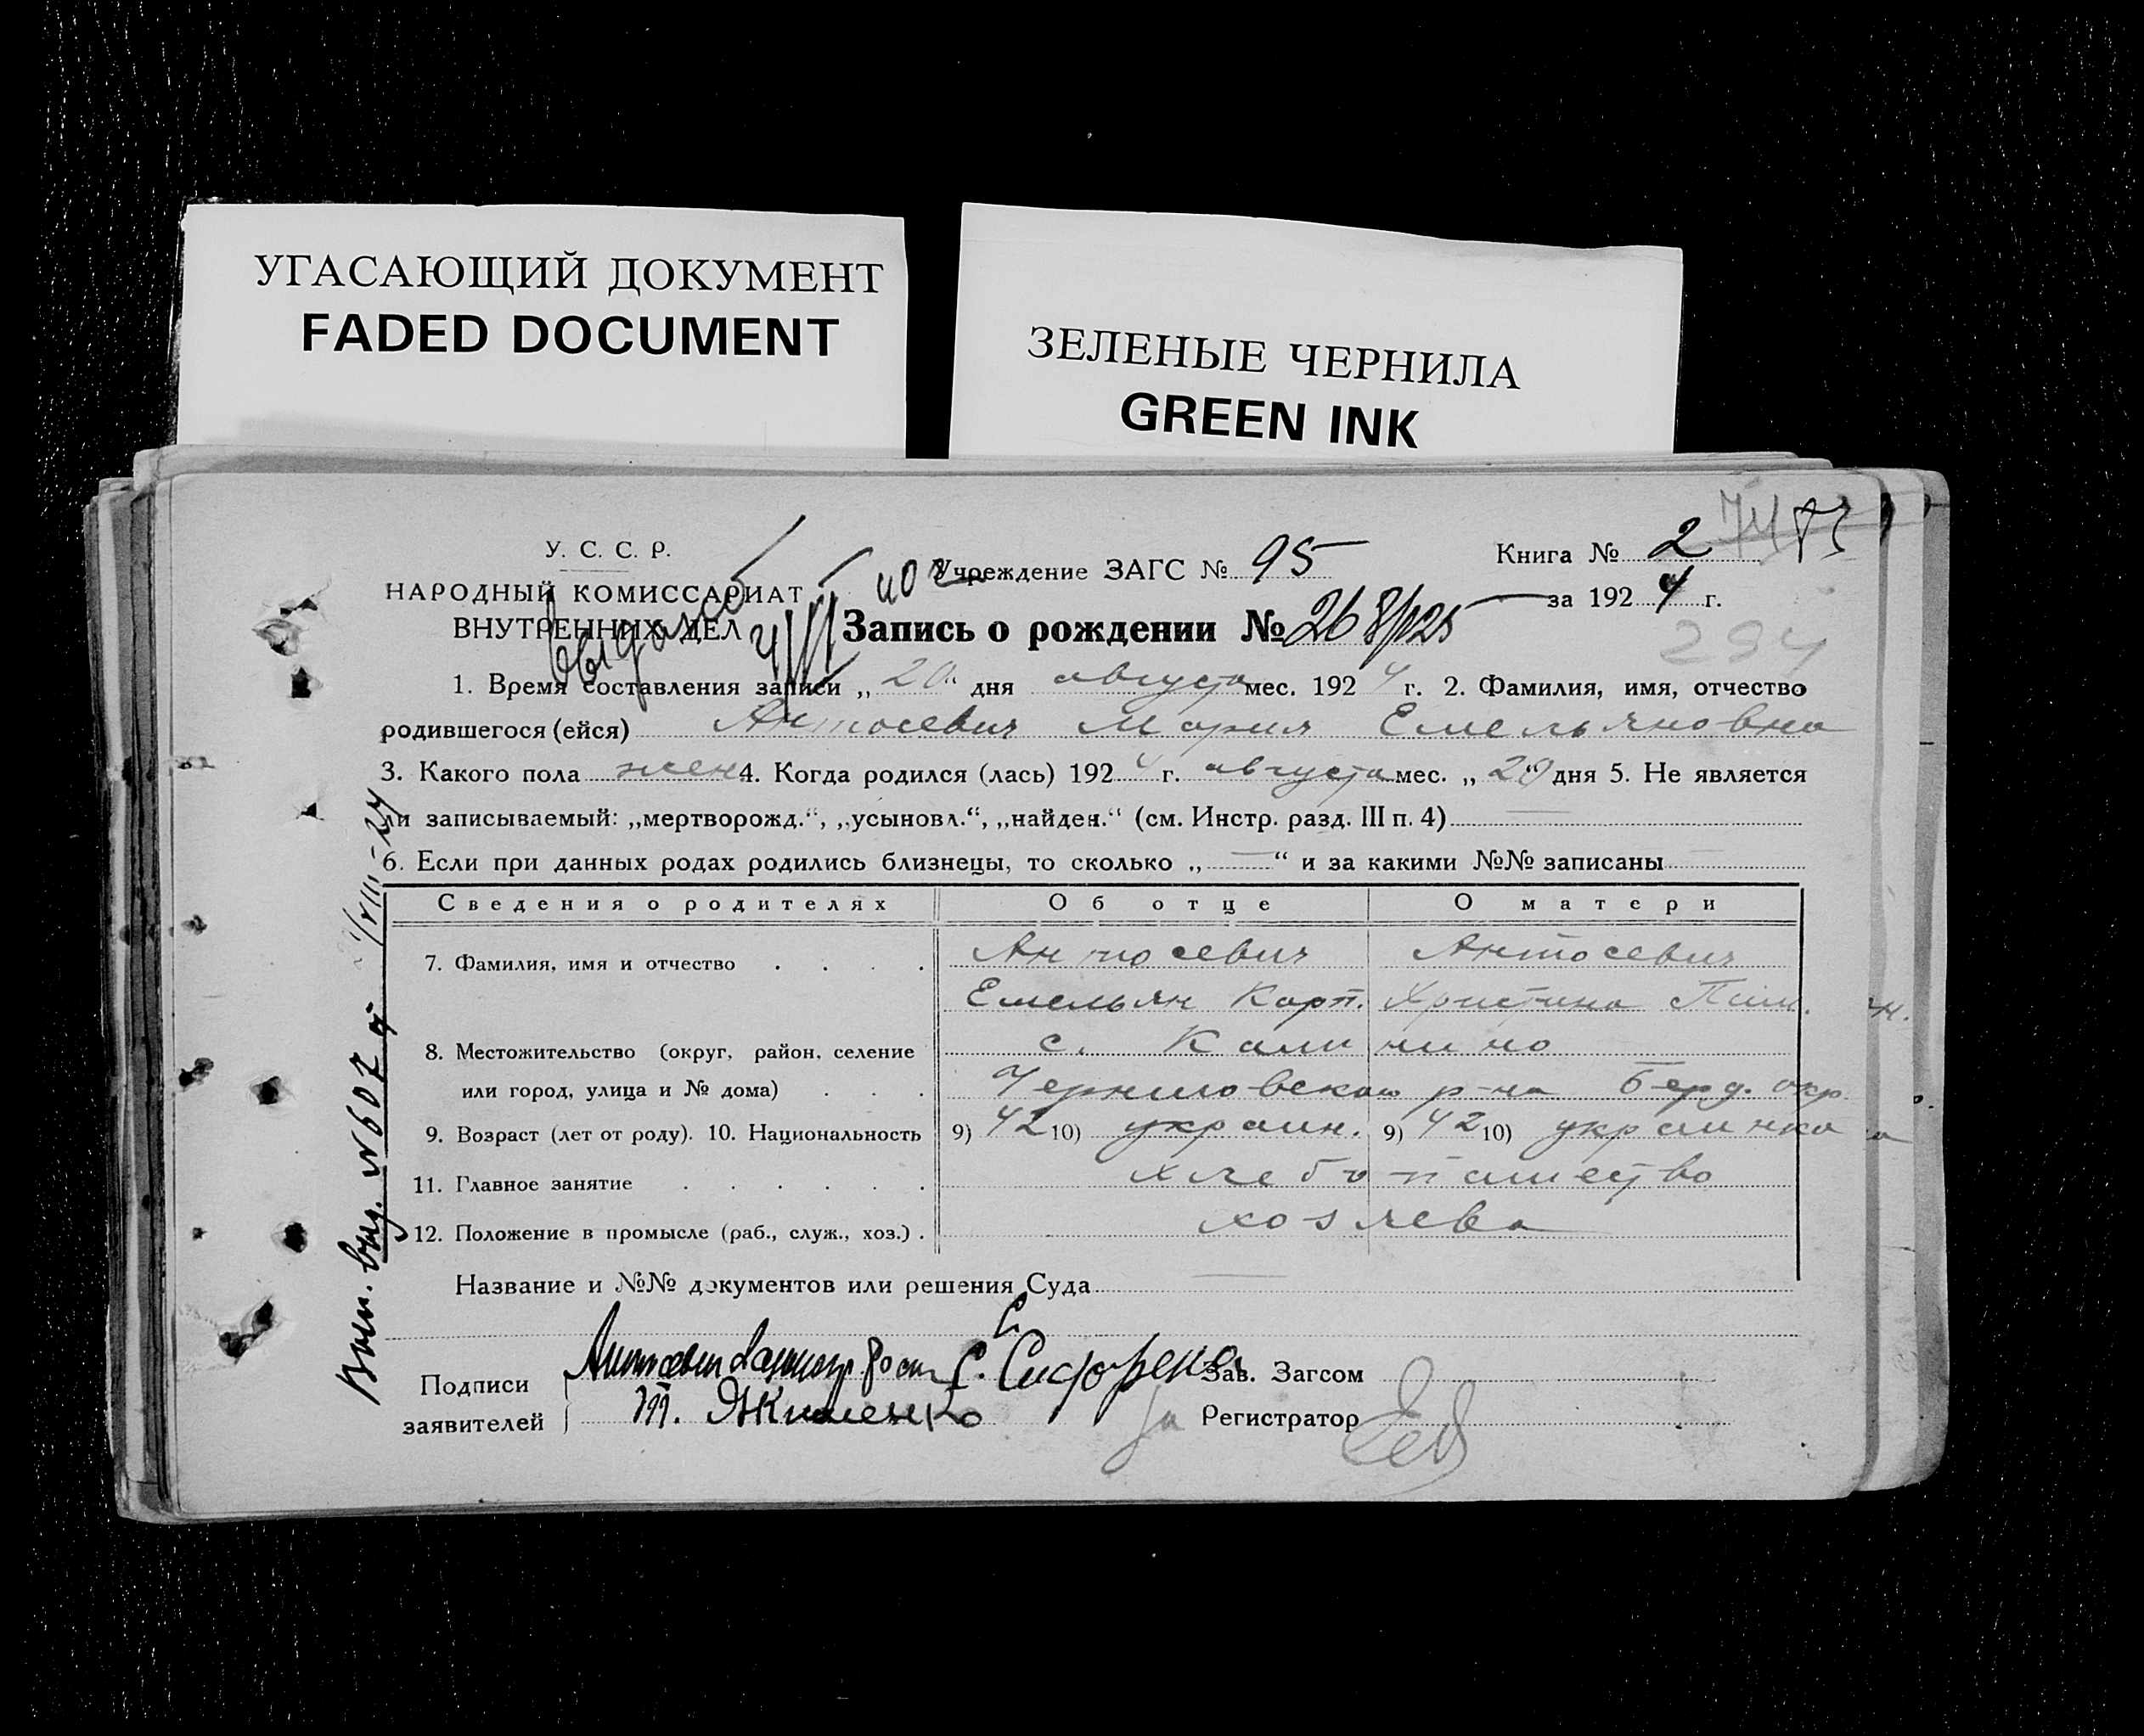 УГАСАЮЩИЙ ДОКУМЕНТ
FADED DOCUMENT
ЗЕЛЕНЫЕ ЧЕРНИЛА
GREEN INK
У. С. С. Р.
НАРОДНЫЙ КОМИССАРИАТ
ВНУТРЕННИХ ДЕЛ
Учреждение ЗАГС № 95
Книга № 2
за 1924 г.
Запись о рождении №
294
1. Время составления записи „20“ дня августа мес. 1924 г. 2. Фамилия, имя, отчество
родившегося (ейся) Антосевич Мария Емельяновна
3. Какого пола жен 4. Когда родился (лась) 1924 г. августа мес. „20“ дня 5. Не является
ли записываемый: „мертворожд.“, „усыновл.“, „найден.“ (см. Инстр. разд. III п. 4)
6. Если при данных родах родились близнецы, то сколько „—“ и за какими №№ записаны —
Сведения о родителях Об отце О матери
7. Фамилия, имя и отчество Антосевич Антосевич
Емельян Карп. Христина
8. Местожительство (округ, район, селение с. Калинино
или город, улица и № дома) Черниговского р-на Берд. окр.
9. Возраст (лет от роду). 10. Национальность 9) 42 10) украин. 9) 42 10) украинка
11. Главное занятие хлебопашество
12. Положение в промысле (раб., служ., хоз.) хозяева
Название и №№ документов или решения Суда —
Подписи
заявителей
Сидоренко
Якименко
Зав. Загсом
за Регистратор